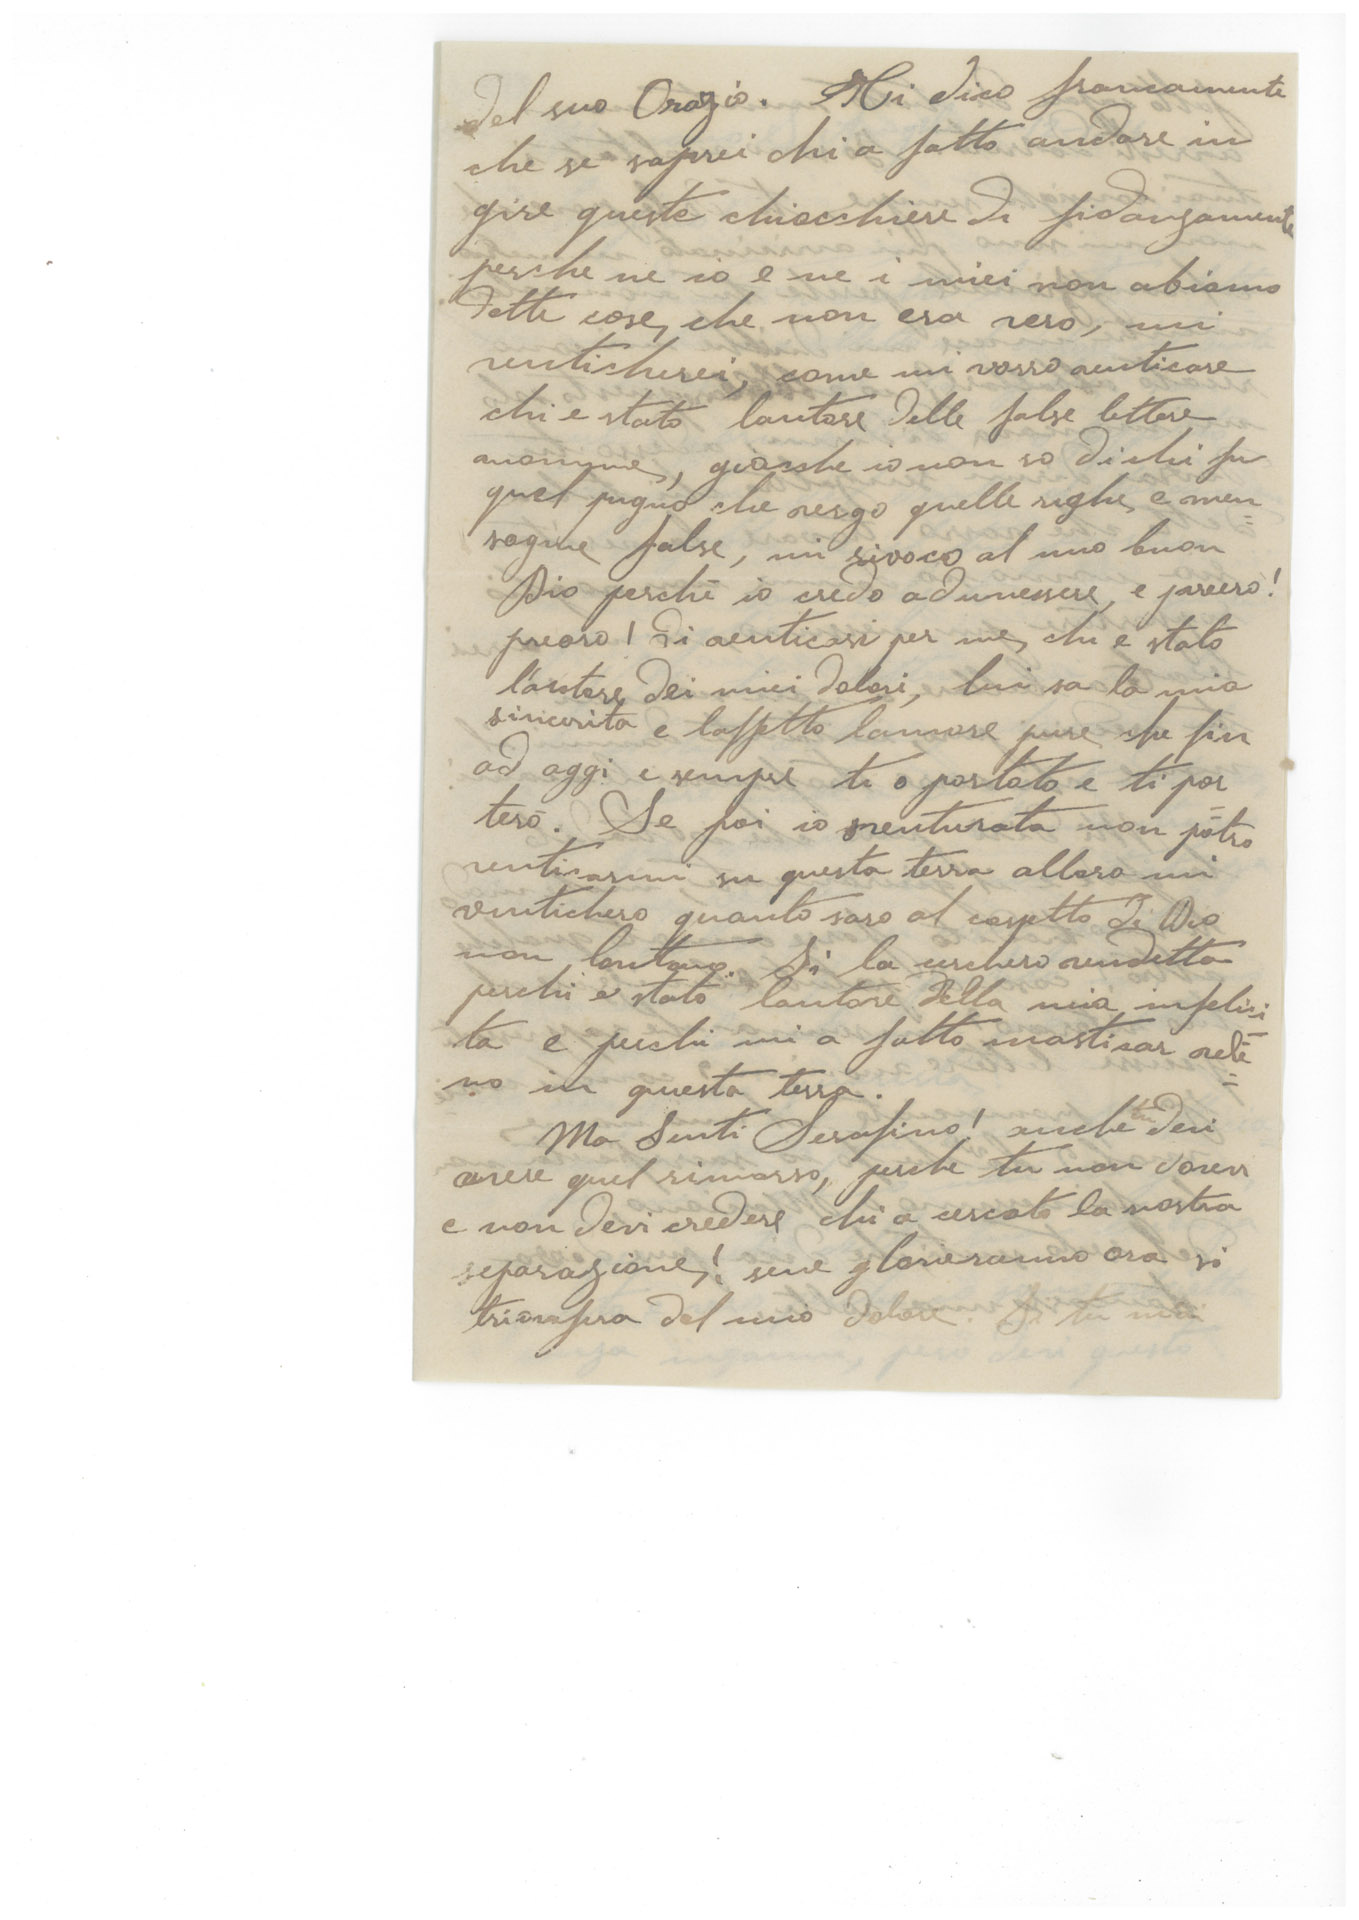 del suo Orazio. Mi dico francamente
che se saprei chi a fatto andare in
gire queste chiacchiere di fidanzamente
perche ne io e ne i miei non abiamo
dette cose, che non era vero, mi
venticherei, come mi vorro venticare
chi e stato lautore delle false lettere
anonime, giacche io non so di chi fu
quel pugno che vergo quelle righe e men=
sogne false, mi rivoco al mio buon
Dio perchè io credo adunessere, e preero!
preoro! di venticarsi per me, chi e stato
l'autore dei miei dolori, lui sa la mia
sincerita e laffetto lamore pure che fin
ad oggi e sempre ti o portato e ti por
terò. Se poi io sventurata non potro
venticarmi su questa terra allora mi
ventichero quanto saro al cospetto di Dio
non lontano. Si la cerchero vendetta
perchi e stato lautore della mia infelici
ta e perchi mi a fatto masticar vele=
no in questa terra.
Ma Senti Serafino! anche tu devi
avere quel rimorso, perche tu non dovevi
e non devi credere chi a cercato la nostra
separazione! sene glorieranno ora si
trionfera del mio dolore. Si tu mia